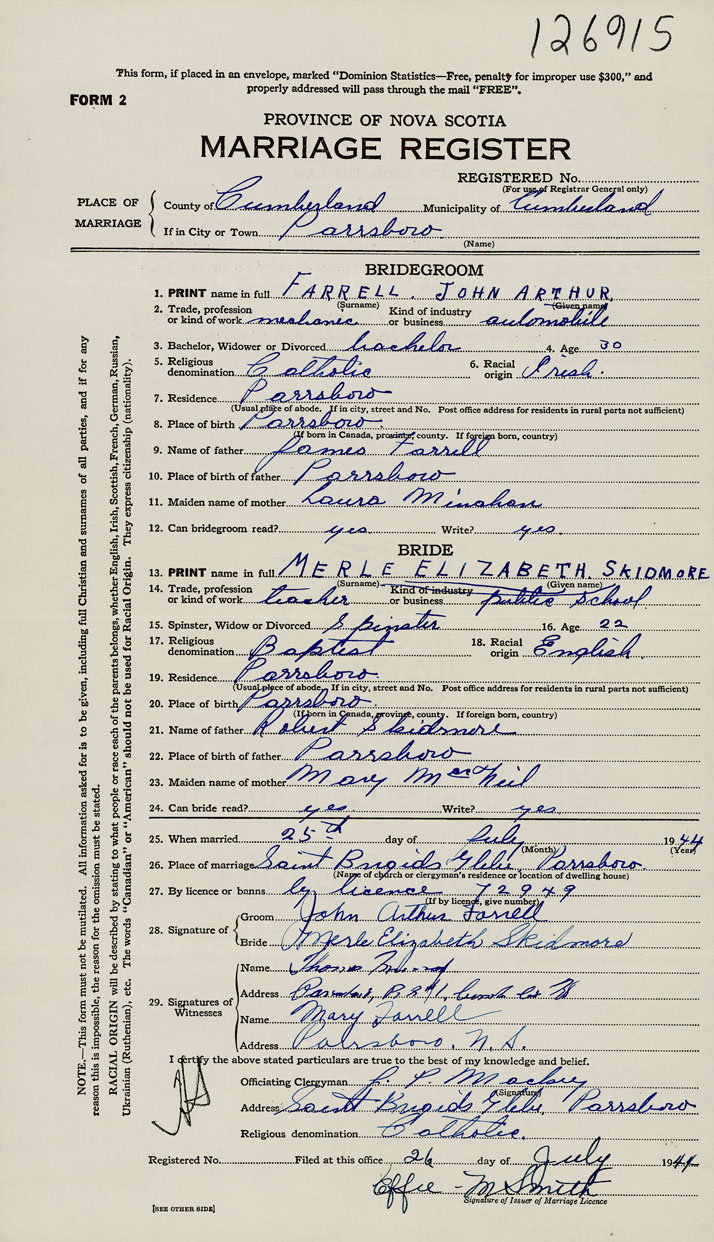 126915
This form, if placed in an envelope, marked "Dominion Statistics—Free, penalty for improper use $300," and
properly addressed will pass through the mail "FREE".
FORM 2
PROVINCE OF NOVA SCOTIA
MARRIAGE REGISTER
REGISTERED No.
(For use of Registrar General only)
PLACE OF MARRIAGE
County of Cumberland Municipality of Cumberland
If in City or Town Parrsboro
(Name)
BRIDEGROOM
1. PRINT name in full FARRELL. JOHN ARTHUR
(Surname) (Given name)
2. Trade, profession or kind of work mechanic Kind of industry or business automobile
3. Bachelor, Widower or Divorced bachelor 4. Age 30
5. Religious denomination Catholic 6. Racial origin Irish.
7. Residence Parrsboro
(Usual place of abode. If in city, street and No. Post office address for residents in rural parts not sufficient)
8. Place of birth Parrsboro
(If born in Canada, province, county. If foreign born, country)
9. Name of father James Farrell
10. Place of birth of father Parrsboro
11. Maiden name of mother Laura Minahan
12. Can bridegroom read? yes Write? yes.
BRIDE
13. PRINT name in full MERLE ELIZABETH. SKIDMORE
(Surname) (Given name)
14. Trade, profession or kind of work teacher Kind of industry or business public School
15. Spinster, Widow or Divorced Spinster 16. Age 22
17. Religious denomination Baptist 18. Racial origin English.
19. Residence Parrsboro
(Usual place of abode. If in city, street and No. Post office address for residents in rural parts not sufficient)
20. Place of birth Parrsboro
(If born in Canada, province, county. If foreign born, country)
21. Name of father Robert Skidmore
22. Place of birth of father Parrsboro
23. Maiden name of mother Mary MacNeil
24. Can bride read? yes Write? yes
25. When married 25th day of July 1944
(Month) (Year)
26. Place of marriage Saint Brigids Glebe Parrsboro.
(Name of church or clergyman's residence or location of dwelling house)
27. By licence or banns by licence 72949
(If by licence, give number)
28. Signature of
Groom John Arthur Farrell
Bride Merle Elizabeth Skidmore
29. Signatures of Witnesses
Name Thomas
Address
Name Mary Farrell
Address Parrsboro. N.S.
I certify the above stated particulars are true to the best of my knowledge and belief.
Officiating Clergyman J. P. Mackey
(Signature)
Address Saint Brigids Glebe, Parrsboro
Religious denomination Catholic.
Registered No. Filed at this office 26 day of July 1944
Effie M Smith
Signature of Issuer of Marriage Licence
[SEE OTHER SIDE]
NOTE.—This form must not be mutilated. All information asked for is to be given, including full Christian and surnames of all parties, and if for any
reason this is impossible, the reason for the omission must be stated.
RACIAL ORIGIN will be described by stating to what people or race each of the parents belongs, whether English, Irish, Scottish, French, German, Russian,
Ukrainian (Ruthenian), etc. The words "Canadian" or "American" should not be used for Racial Origin. They express citizenship (nationality).